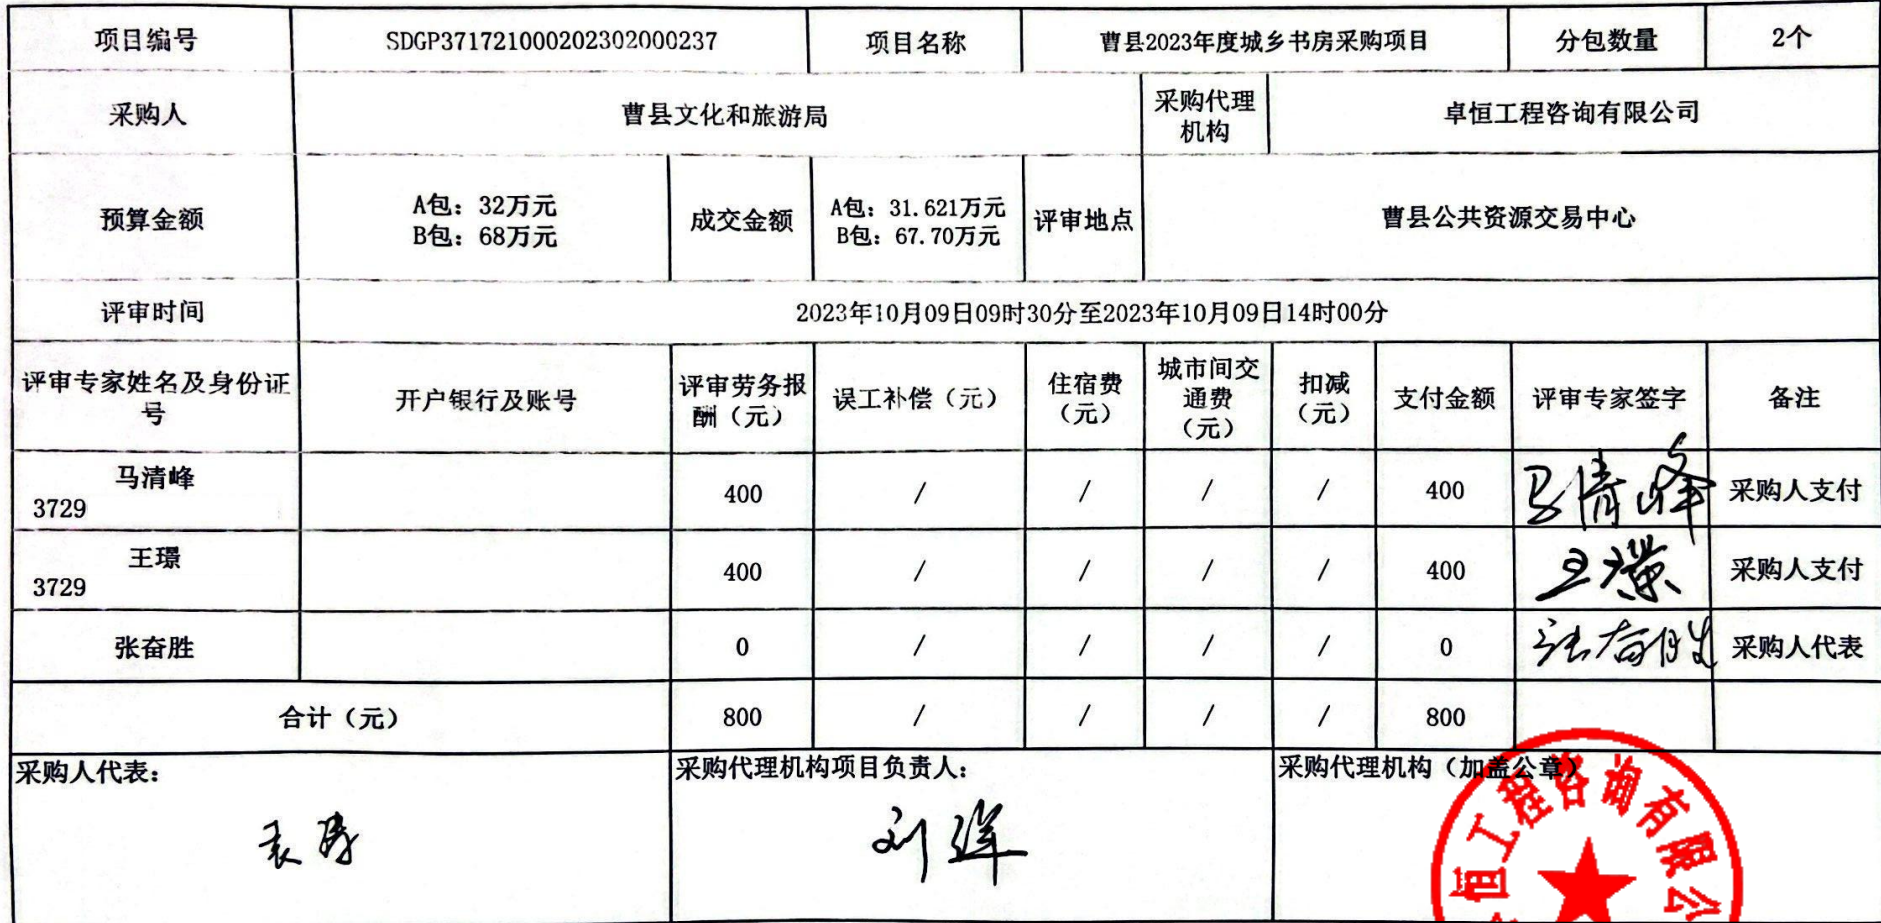 项目编号 SDGP371721000202302000237 项目名称 曹县2023年度城乡书房采购项目 分包数量 2个
采购人 曹县文化和旅游局 采购代理 卓恒工程咨询有限公司
机构
预算金额 A包：32万元 成交金额 A包：31.621万元 评审地点 曹县公共资源交易中心
B包：68万元 B包：67.70万元
评审时间 2023年10月09日09时30分至2023年10月09日14时00分
评审专家姓名及身份证 开户银行及账号 评审劳务报 误工补偿（元） 住宿费 城市间交 扣减 支付金额 评审专家签字 备注
号 酬（元） （元） 通费 （元）
（元）
马清峰 400 / / / / 400 马清峰 采购人支付
3729
王璟 400 / / / / 400 王璟 采购人支付
3729
张奋胜 0 / / / / 0 张奋胜 采购人代表
合计（元） 800 / / / / 800
采购人代表： 采购代理机构项目负责人： 采购代理机构（加盖公章）
恒工程咨询有限公